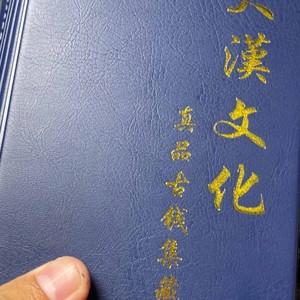 漢文化
真品古錢集藏